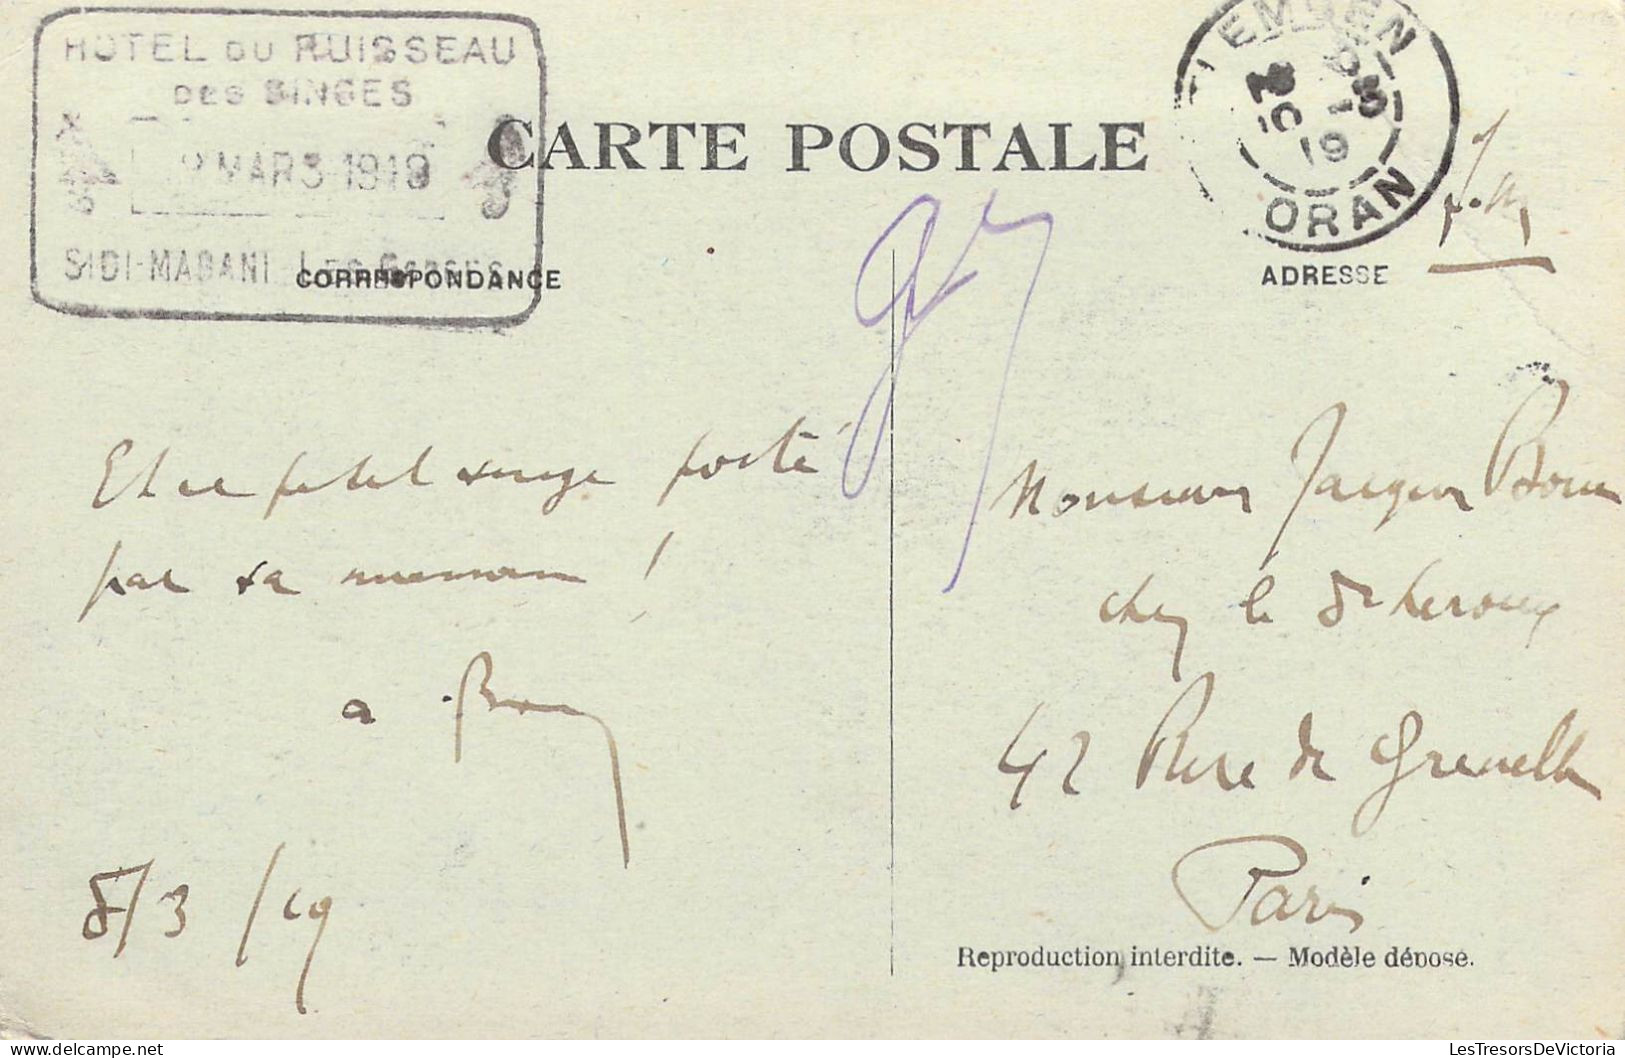 HOTEL DU RUISSEAU
DES SINGES
MARS 1919
SIDI-MADANI
CARTE POSTALE
TLEMCEN
20
19
ORAN
CORRESPONDANCE
ADRESSE
Et ce petit singe porté
par sa maman !
a
8/3/19
Monsieur Jacques
chez le Dr Leroux
42 Rue de Grenelle
Paris
Reproduction interdite. — Modèle déposé.
LesTresorsDeVictoria